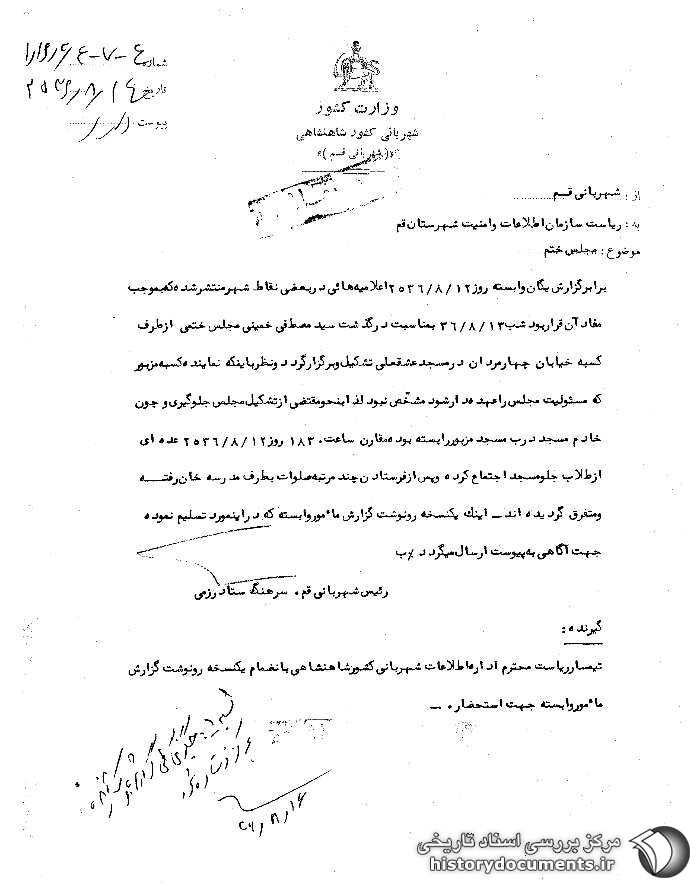 شماره
تاریخ ۲۵۳۶/۸/۱۴
پیوست دارد
وزارت کشور
شهربانی کشور شاهنشاهی
«(شهربانی قم)»
از: شهربانی قم
به: ریاست سازمان اطلاعات وامنیت شهرستان قم
موضوع: مجلس ختم
برابر گزارش یگان وابسته روز ۲۵۳۶/۸/۱۲ اعلامیه هائی دربعضی نقاط شهر منتشر شده که بموجب
مفاد آن قرار بود شب ۳۶/۸/۱۳ بمناسبت درگذشت سید مصطفی خمینی مجلس ختمی ازطرف
کسبه خیابان چهارمردان درمسجد عشقعلی تشکیل وبرگزار گردد ونظر باینکه نماینده کسبه مزبور
که مسئولیت مجلس راعهده دار شود مشخص نبود لذا بنحو مقتضی از تشکیل مجلس جلوگیری و چون
خادم مسجد درب مسجد مزبور رابسته بوده مقارن ساعت ۱۸۳۰ روز ۲۵۳۶/۸/۱۲ عده ای
ازطلاب جلو مسجد اجتماع کرده وپس ازفرستادن چند مرتبه صلوات بطرف مدرسه خان رفتـــه
ومتفرق گردیده اند ــ اینك یکنسخه رونوشت گزارش مأمور وابسته که دراینمورد تسلیم نموده
جهت آگاهی به پیوست ارسال میگردد٪ب
رئیس شهربانی قم. سرهنگ ستاد رزمی
گیرنده:
تیمسار ریاست محترم اداره اطلاعات شهربانی کشور شاهنشاهی بانضمام یکنسخه رونوشت گزارش
مأمور وابسته جهت استحضار. ــ
۳۶/۸/۱۶
مرکز بررسی اسناد تاریخی
historydocuments.ir